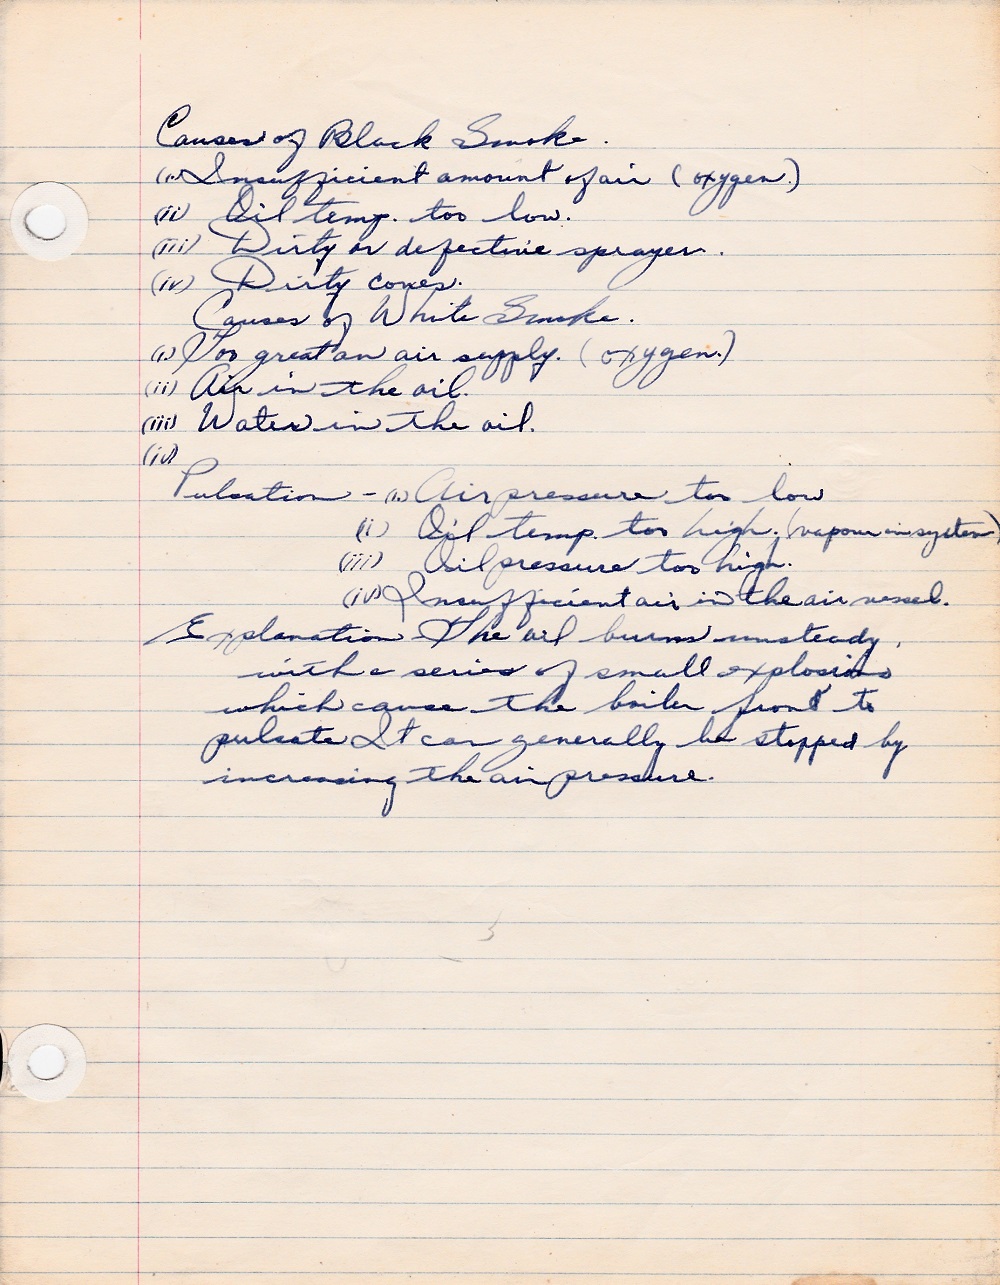 Causes of Black Smoke.
(i) Insufficient amount of air (oxygen.)
(ii) Oil temp. too low.
(iii) Dirty or defective sprayer.
(iv) Dirty cones.
Causes of White Smoke.
(i) Too great an air supply. (oxygen.)
(ii) Air in the oil.
(iii) Water in the oil.
(iv)
Pulsation - (i) Air pressure too low
(ii) Oil temp. too high. (vapour in system)
(iii) Oil pressure too high.
(iv) Insufficient air in the air vessel.
Explanation The oil burns unsteady,
with a series of small explosions
which cause the boiler front to
pulsate It can generally be stopped by
increasing the air pressure.